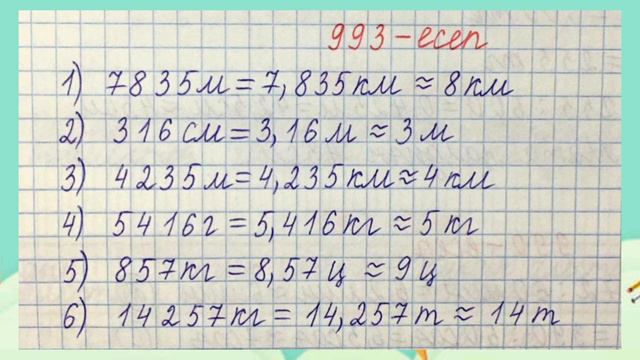 993-есеп
1) 7835м = 7,835км ≈ 8км
2) 316см = 3,16м ≈ 3м
3) 4235м = 4,235км ≈ 4км
4) 5416г = 5,416кг ≈ 5кг
5) 857кг = 8,57ц ≈ 9ц
6) 14257кг = 14,257т ≈ 14т